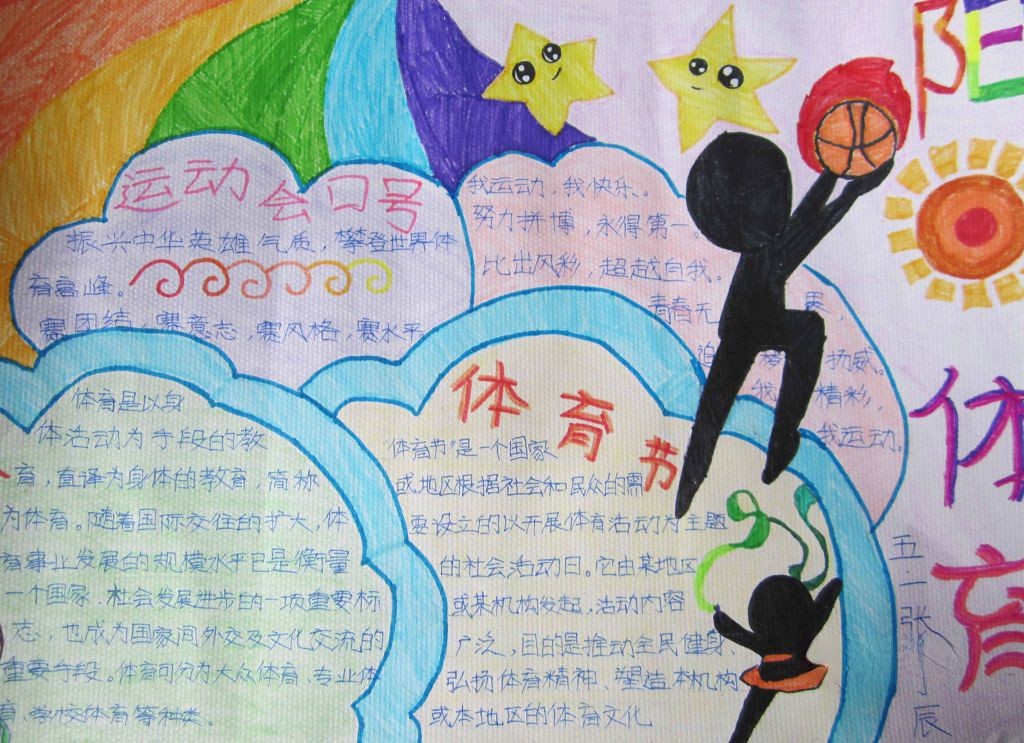 阳
体
育
五一 张 辰
运动会口号
振兴中华英雄气质，攀登世界体
育高峰。
赛团结，赛意志，赛风格，赛水平
我运动，我快乐。
努力拼博，永得第一。
比出风彩，超越自我。
青春无 畏，
追 梦 扬威。
我 精彩，
我运动。
体育是以身
体活动为手段的教
育，直译为身体的教育，简称
为体育。随着国际交往的扩大，体
育事业发展的规模水平已是衡量
一个国家、社会发展进步的一项重要标
志，也成为国家间外交及文化交流的
重要手段。体育可分为大众体育、专业体
育、学校体育等种类。
体育节
“体育节”是一个国家
或地区根据社会和民众的需
要设立的以开展体育活动为主题
的社会活动日。它由某地区
或某机构发起，活动内容
广泛，目的是推动全民健身
弘扬体育精神、塑造本机构
或本地区的体育文化